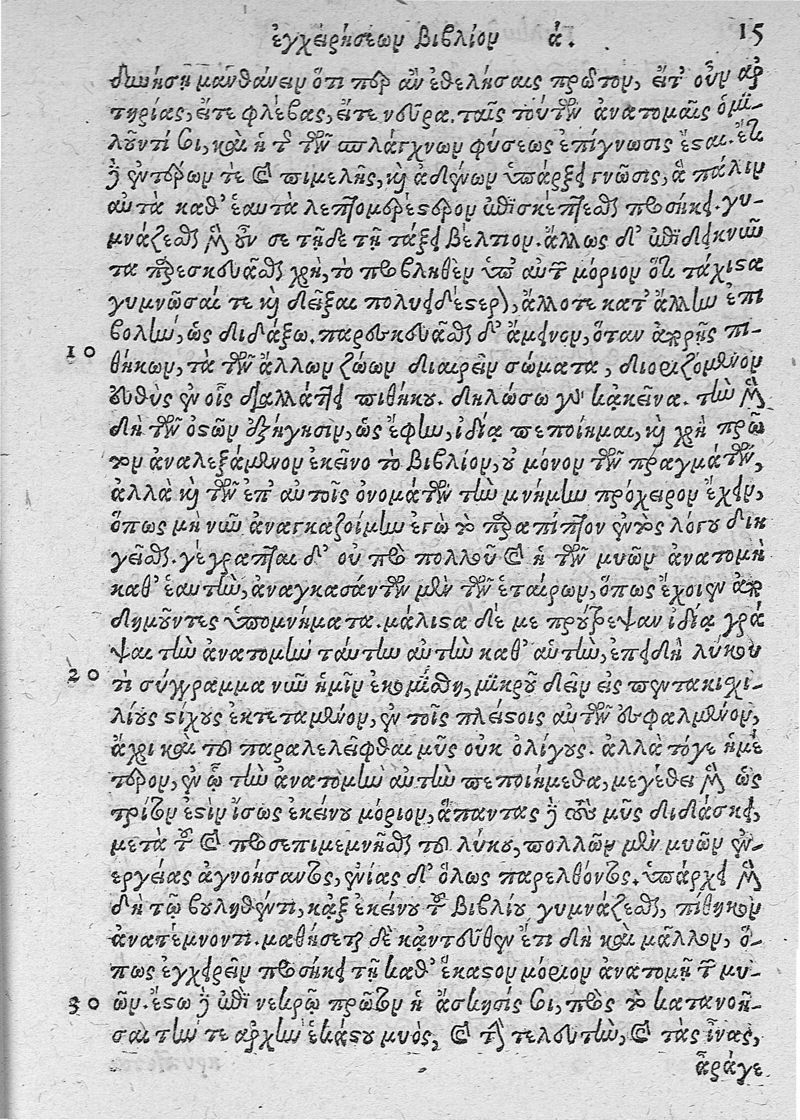 ἐγχειρήσεων Βιβλίον ά. 15
δυνήσῃ μανθάνειν ὅτι περ ἂν ἐθελήσαις πρῶτον, εἴτ' οὖν ἀρ
τηρίας, εἴτε φλέβας, εἴτε νεῦρα. ταῖς τούτων ἀνατομαῖς ὁμι-
λοῦντί σοι, καὶ ἡ τῆς τῶν σπλάγχνων φύσεως ἐπίγνωσις ἔσται.
δὲ ἐντέρων τε καὶ πιμελῆς, καὶ ἀδένων ὑπάρξει γνῶσις, ἃ πάλιν
αὐτὰ καθ' ἑαυτὰ λεπτομερέστερον ἐπισκέπτεσθαι προσήκει. γυ-
μνάζεσθαι μὲν οὖν σε τῇδε τῇ τάξει βέλτιον. ἄλλως δ' ἐπιδεικνῦν
τα παρεσκευάσθαι χρὴ, τὸ προβληθὲν ὑπ' αὐτοῦ μόριον ὅτι τάχιστα
γυμνῶσαί τε καὶ δεῖξαι πολυειδέστερον, ἄλλοτε κατ' ἄλλην ἐπι
βολὴν, ὡς διδάξω. παρεσκευάσθαι δ' ἄμεινον, ὅταν ἀπορῇς πι-
10 θήκων, τὰ τῶν ἄλλων ζώων διαιρεῖν σώματα, διοριζόμενον
εὐθὺς ἐν οἷς διαλλάττει πιθήκου. δηλώσω γὰρ κἀκεῖνα. τὴν μὲν
δὴ τῶν ὀστῶν ἐξήγησιν, ὡς ἔφην, ἰδίᾳ πεποίημαι, καὶ χρὴ πρῶ
τον ἀναλεξάμενον ἐκεῖνο τὸ βιβλίον, οὐ μόνον τῶν πραγμάτων,
ἀλλὰ καὶ τῶν ἐπ' αὐτοῖς ὀνομάτων τὴν μνήμην πρόχειρον ἔχειν,
ὅπως μὴ νῦν ἀναγκαζοίμην ἐγὼ τὸ παραπίπτον ἐντὸς λόγου διη
γεῖσθαι. γέγραπται δ' οὐ πρὸ πολλοῦ καὶ ἡ τῶν μυῶν ἀνατομὴ
καθ' ἑαυτὴν, ἀναγκασάντων μὲν τῶν ἑταίρων, ὅπως ἔχοιεν ἀπο
δημοῦντες ὑπομνήματα. μάλιστα δέ με προὔτρεψαν ἰδίᾳ γρά
ψαι τὴν ἀνατομὴν ταύτην αὐτὴν καθ' αὑτὴν, ἐπειδὴ λύκου
20 τὶ σύγγραμμα νῦν ἡμῖν ἐκομίσθη, μικροῦ δεῖν εἰς πεντακισχι-
λίους στίχους ἐκτεταμένον, ἐν τοῖς πλείστοις αὐτῶν ἐσφαλμένον,
ἄχρι καὶ τοῦ παραλελεῖφθαι μῦς οὐκ ὀλίγους. ἀλλὰ τόγε ἡμέ
τερον, ἐν ᾧ τὴν ἀνατομὴν αὐτὴν πεποιήμεθα, μεγέθει μὲν ὡς
τρίτον ἐστὶν ἴσως ἐκείνου μόριον, ἅπαντας δὲ τοὺς μῦς διδάσκει,
μετὰ τοῦ καὶ προσεπιμεμνῆσθαι τοῦ λύκου, πολλῶν μὲν μυῶν ἐν-
εργείας ἀγνοήσαντος, ἐνίας δ' ὅλως παρελθόντος. ὑπάρχει μὲν
δὴ τῷ βουληθέντι, κἀξ ἐκείνου τοῦ βιβλίου γυμνάζεσθαι, πίθηκον
ἀνατέμνοντι. μαθήσεται δὲ κἀντεῦθεν ἔτι δὴ καὶ μᾶλλον, ὅ-
πως ἐγχειρεῖν προσήκει τῇ καθ' ἕκαστον μόριον ἀνατομῇ τῶν μυ-
30 ῶν. ἔστω δὲ ἐπὶ νεκρῷ πρῶτον ἡ ἄσκησίς σοι, πρὸς τὸ κατανοῆ-
σαι τήν τε ἀρχὴν ἑκάστου μυὸς, καὶ τὴν τελευτὴν, καὶ τὰς ἶνας,
ἆράγε